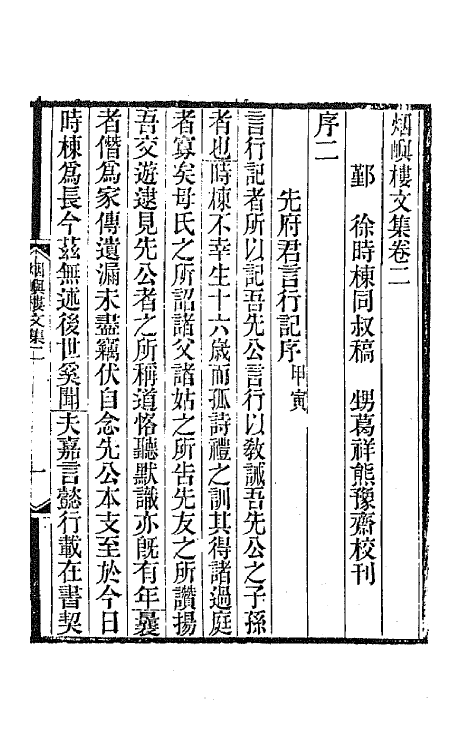 烟嶼樓文集卷二
鄞　徐時棟同叔稿　甥葛祥熊豫齋校刊
序二
先府君言行記序甲寅
言行記者所以記吾先公言行以敎誡吾先公之子孫
者也時棟不幸生十六歲而孤詩禮之訓其得諸過庭
者寡矣母氏之所詔諸父諸姑之所告先友之所讚揚
吾交遊逮見先公者之所稱道恪聽默識亦旣有年曩
者僭爲家傳遺漏未盡竊伏自念先公本支至於今日
時棟爲長今茲無述後世奚聞夫嘉言懿行載在書契
烟嶼樓文集二
一